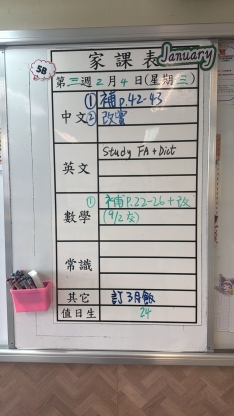 家課表
January
5B
第三週2月4日(星期三)
中文 ①補p.42-43
②改實
英文 Study FA+Dict
數學 ①補P.22-26+改
(9/2交)
常識
其它 訂3月飯
值日生 24